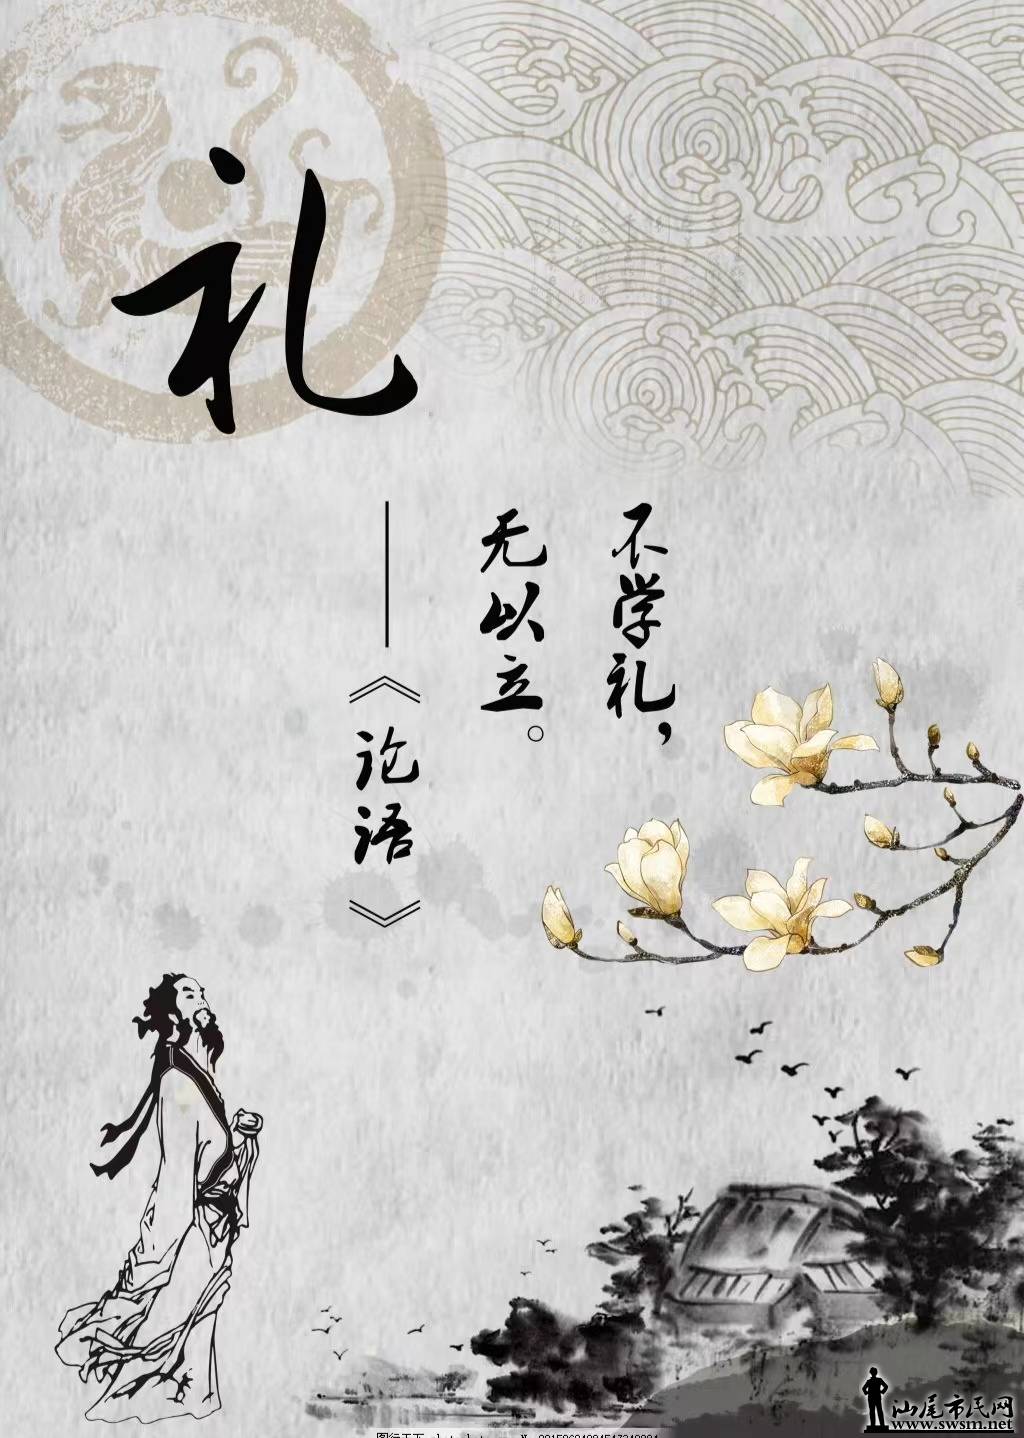 礼
不学礼，
无以立。
——《论语》
汕尾市民网
www.swsm.net